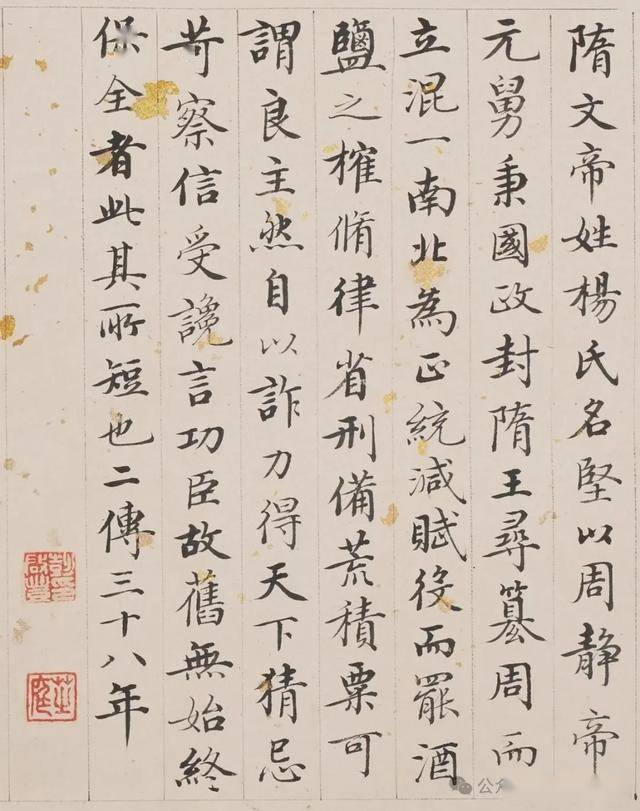 隋文帝姓楊氏名堅以周靜帝
元舅秉國政封隋王尋簒周而
立混一南北為正統減賦役而罷酒
鹽之榷脩律省刑備荒積粟可
謂良主然自以詐力得天下猜忌
苛察信受讒言功臣故舊無始終
保全者此其所短也二傳三十八年
公